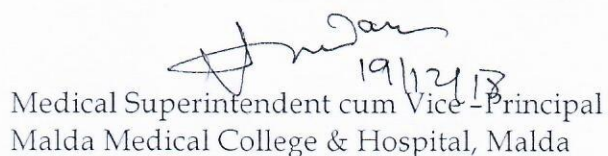 19/12/18
Medical Superintendent cum Vice -Principal
Malda Medical College & Hospital, Malda